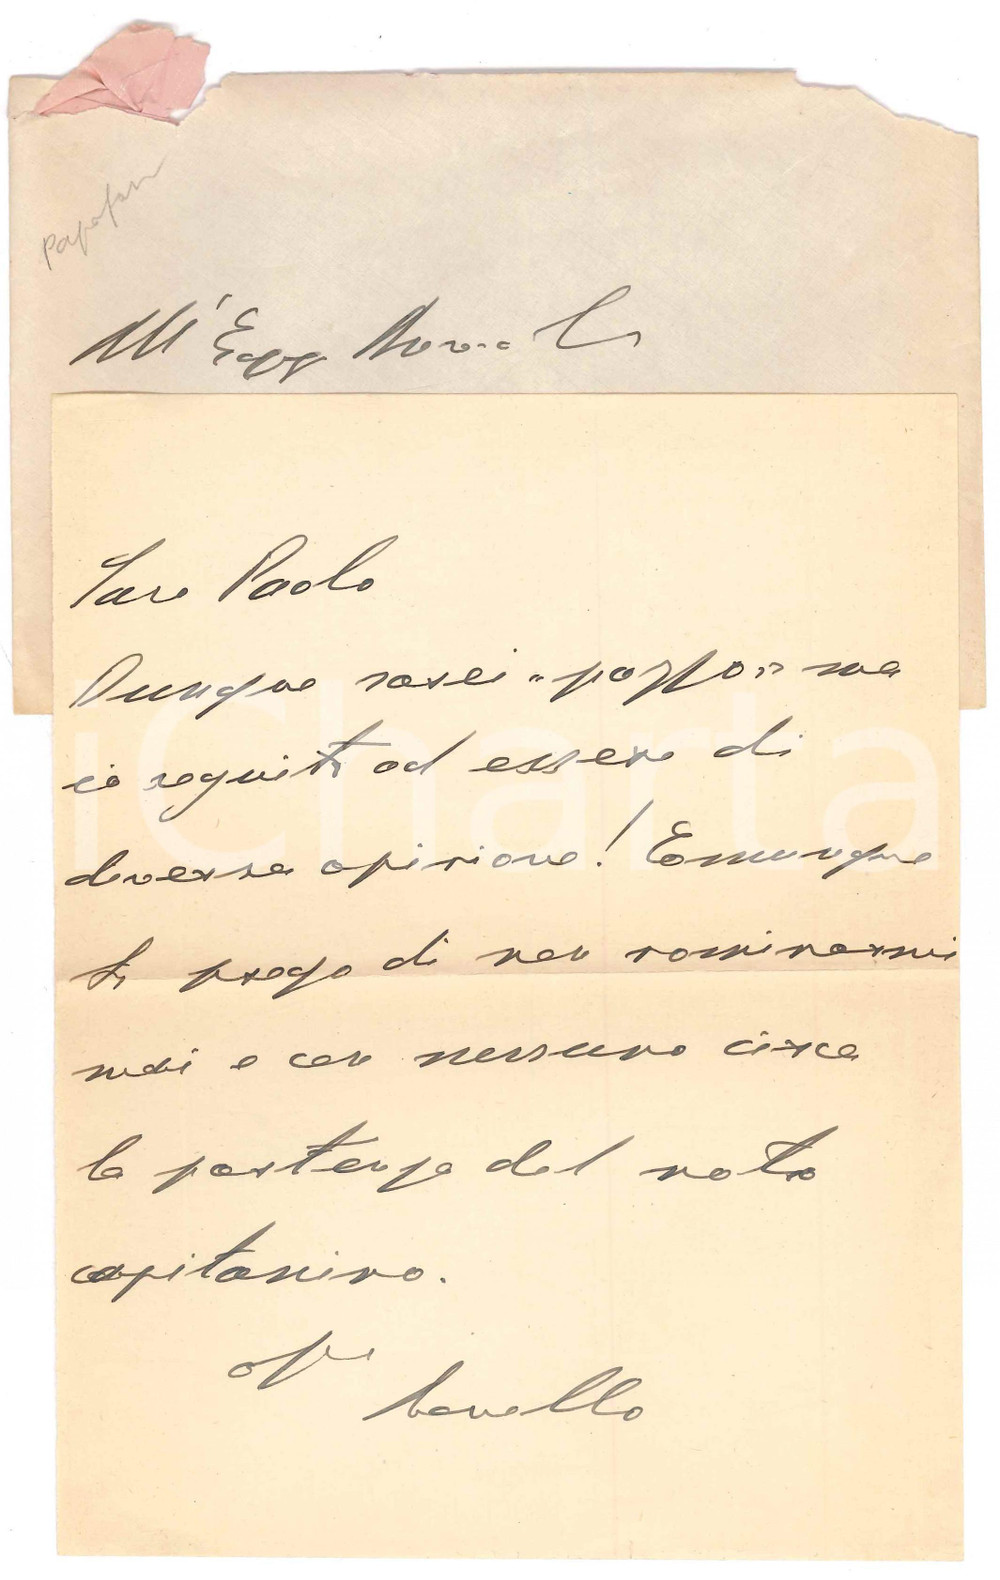 Papafava
All'Egr
Caro Paolo
Dunque sarei "pazzo" ma
io seguito ad essere di
diversa opinione! Comunque
ti prego di non nominarmi
mai e con nessuno circa
la partenza del noto
capitanino.
aff
Novello
iCharta